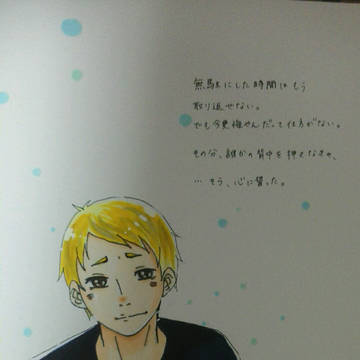 無駄にした時間はもう
取り返せない。
でも今更悔やんだって仕方がない。
その分、誰かの背中を押さなきゃ、
… そう、心に誓った。